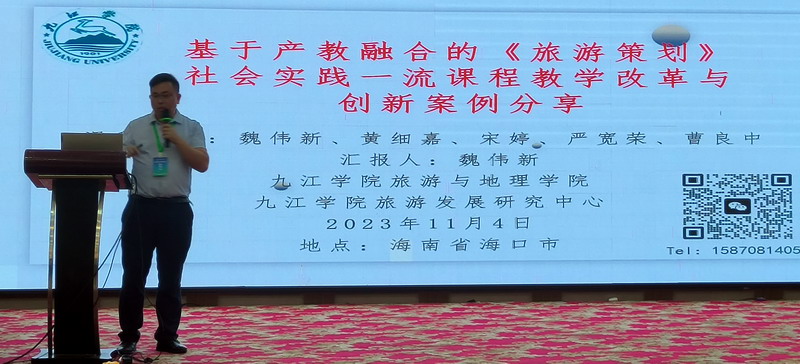 九江学院
1901
JIUJIANG UNIVERSITY
基于产教融合的《旅游策划》
社会实践一流课程教学改革与
创新案例分享
：魏伟新、黄细嘉、宋婷、严宽荣、曹良中
汇报人：魏伟新
九江学院旅游与地理学院
九江学院旅游发展研究中心
2023年11月4日
地点：海南省海口市
Tel：1587081405